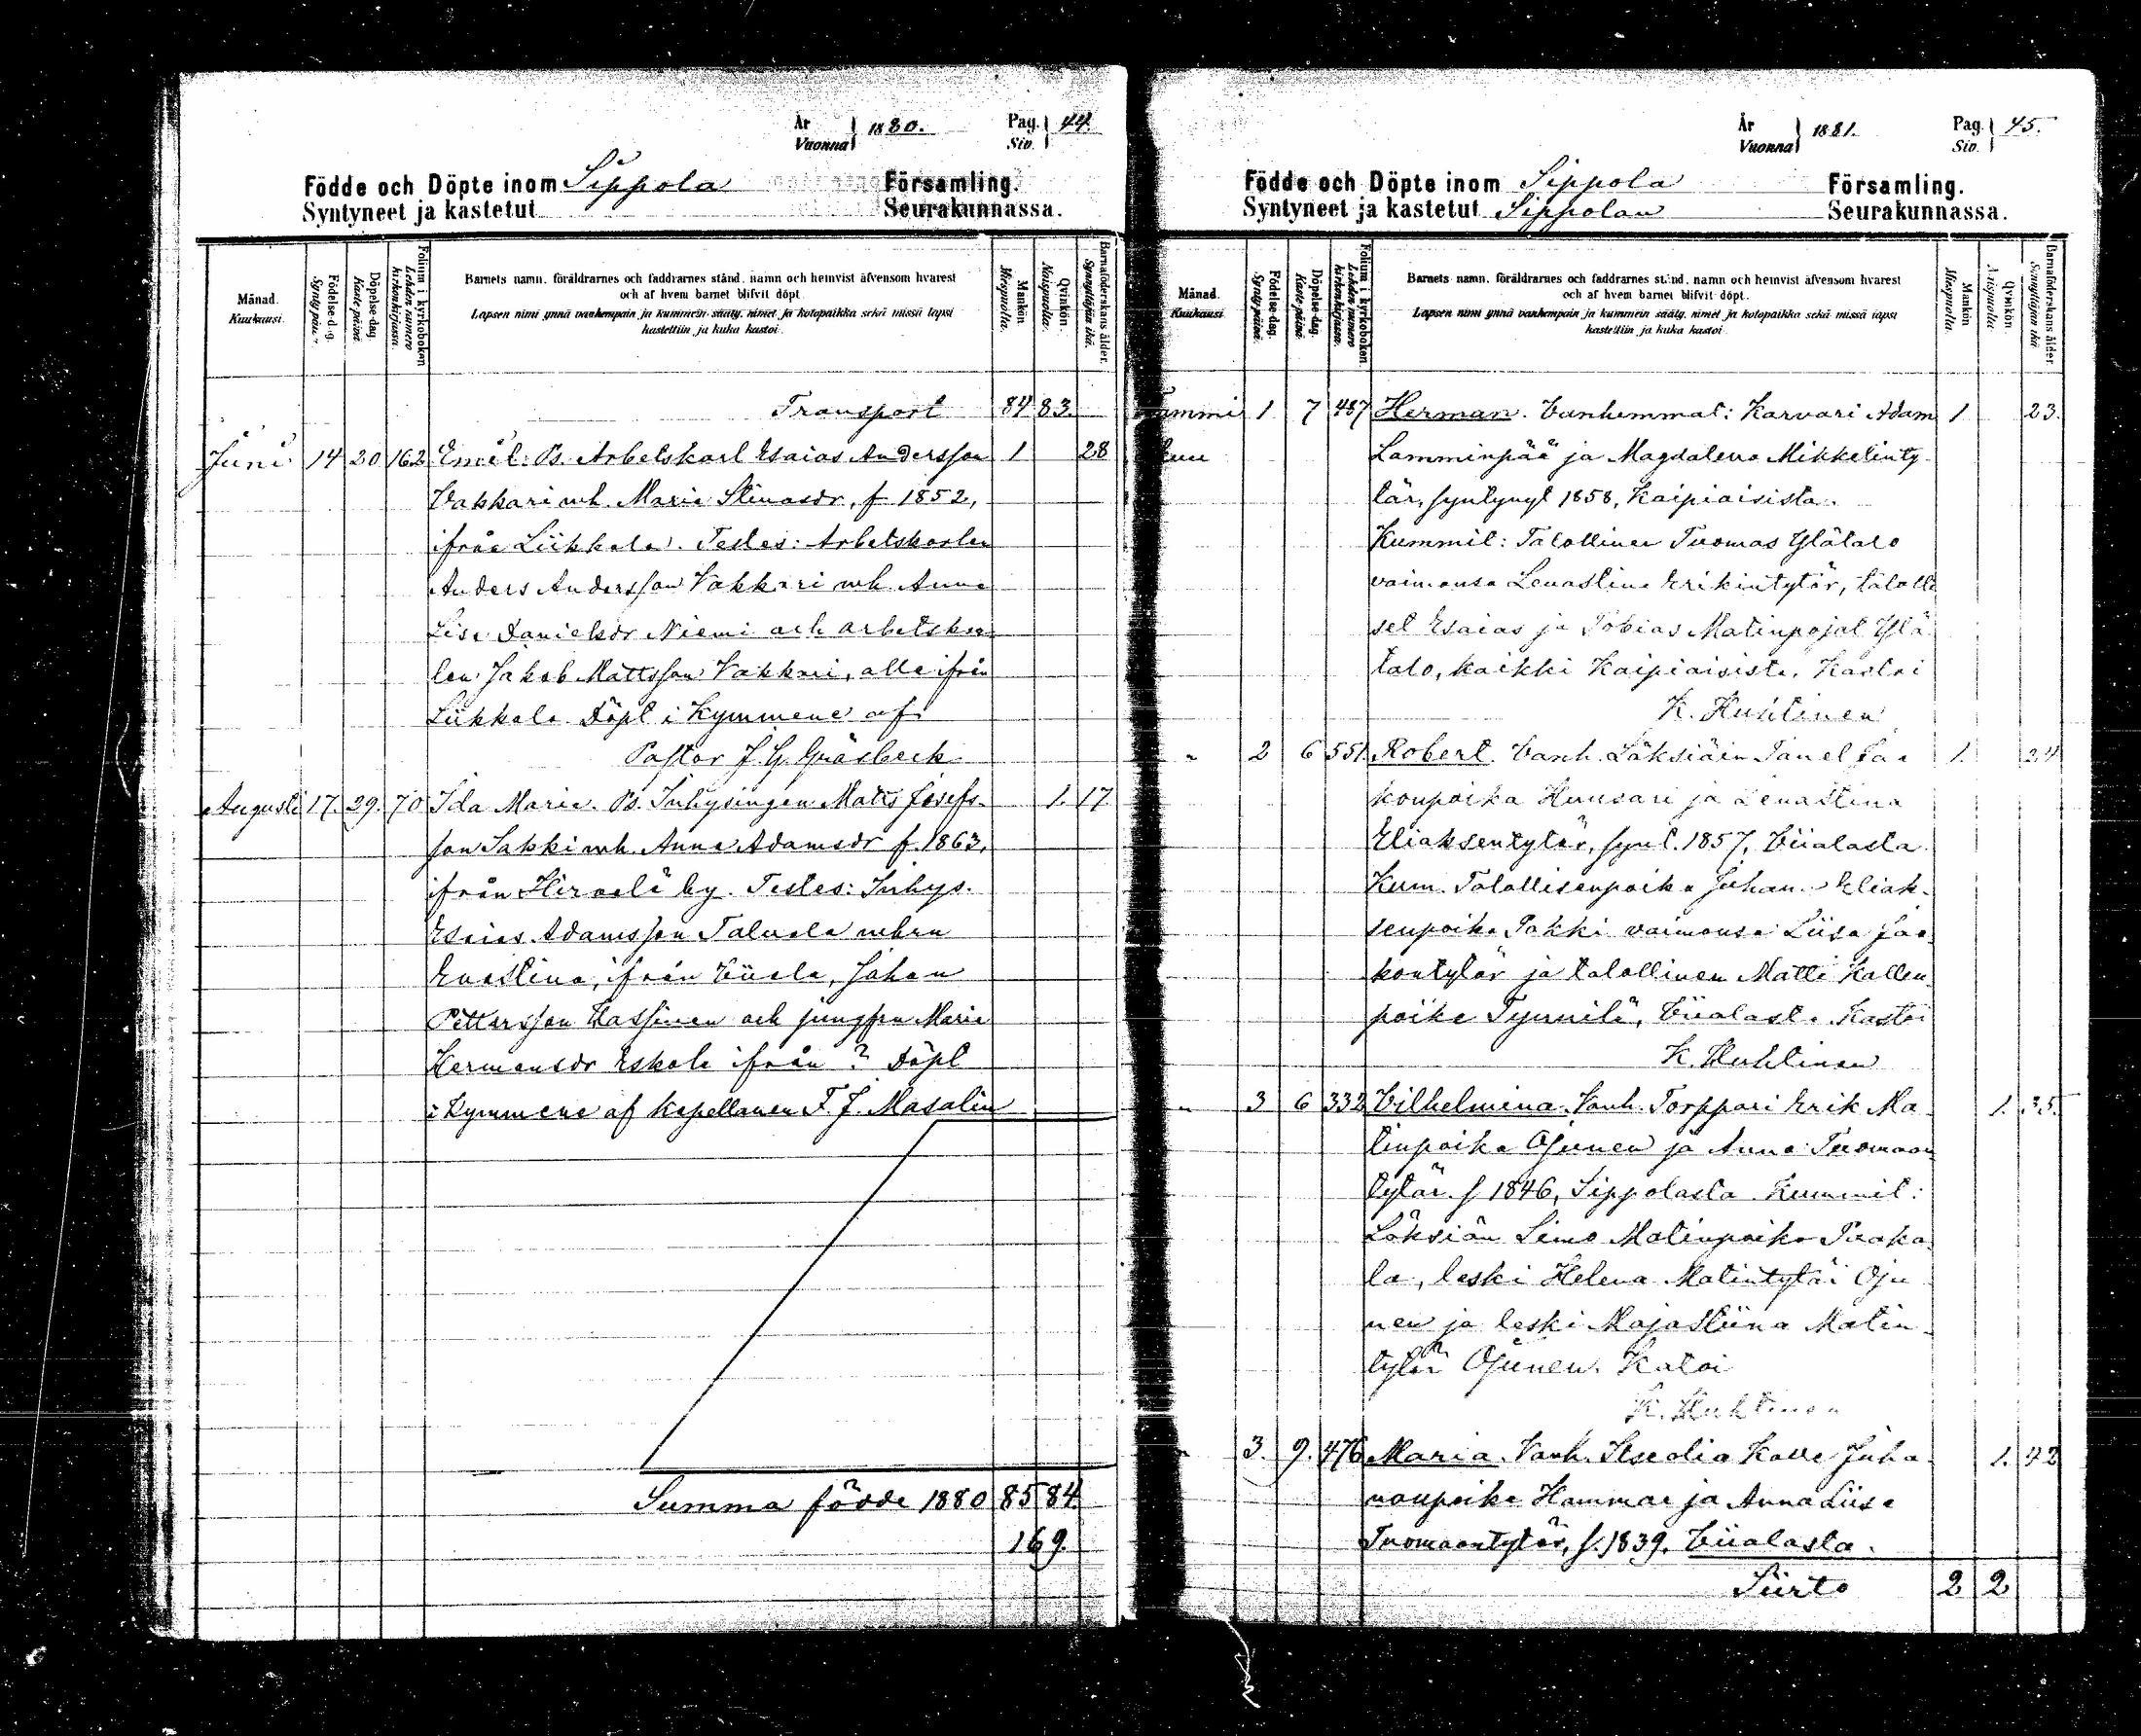 År Vuonna } 1880. Pag. Siv. } 44.
Födde och Döpte inom Sippola Församling.
Syntyneet ja kastetut Seurakunnassa.
Månad. Kuukausi.
Födelse-dag. Syntypäiv.
Döpelse-dag. Kaste-päivä.
Folium i kyrkoboken. Lehden numero kirkonkirjassa.
Barnets namn, föräldrarnes och faddrarnes stånd, namn och hemvist äfvensom hvarest
och af hvem barnet blifvit döpt.
Lapsen nimi ynnä vanhempain ja kummein sääty, nimet ja kotopaikka sekä missä lapsi
kastettiin ja kuka kastoi.
Mankön. Miespuolia.
Qvinkön. Naispuolia.
Barnaföderskans ålder. Synnyttäjän ikä.
Transport 84 83
Juni 14 20 162 Emil. Ps. Arbetskarl Esaias Andersson 1 28
Vakkari mh. Maria Stinasdr, f 1852,
ifrån Liikkala. Testes: Arbetskarlen
Anders Andersson Vakkari mh Anna
Lisa Danielsdr Niemi och arbetskar
len Jakob Mattsson Vakkari, alla ifrån
Liikkala Döpt i Kymmene af
Pastor J. G. Gräsbeck
Augusti 17. 29. 70 Ida Maria. Ps. Inhysingen Matts Josefs- 1. 17
son Sakki mh. Anna Adamsdr f. 1863,
ifrån Hirvelä by. Testes: Inhys.
Esaias Adamsson Taluola mhru
Evastina, ifrån Viiala, Johan
Pettersson Hassinen och jungfrun Maria
Hermansdr Eskola ifrån ? Döpt
i Kymmene af Kapellanen F. J. Masalin
Summa födde 1880 85 84
169.
År Vuonna } 1881. Pag. Siv. } 45.
Födde och Döpte inom Sippola Församling.
Syntyneet ja kastetut Sippolan Seurakunnassa.
Månad. Kuukausi.
Födelse-dag. Syntypäivä.
Döpelse-dag. Kaste-päivä.
Folium i kyrkoboken. Lehden numero kirkonkirjassa.
Barnets namn, föräldrarnes och faddrarnes stånd, namn och hemvist äfvensom hvarest
och af hvem barnet blifvit döpt.
Lapsen nimi ynnä vanhempain ja kummein sääty, nimet ja kotopaikka sekä missä lapsi
kastettiin ja kuka kastoi.
Mankön. Miespuolia.
Qvinkön. Naispuolia.
Barnaföderskans ålder. Synnyttäjän ikä
Tammi 1 7 487 Herman. Vanhemmat: Karvari Adam 1 23.
kuu Lamminpää ja Magdalena Mikkelinty
tär, syntynyt 1858, Kaipiaisista.
Kummit: Talollinen Tuomas Ylätalo
vaimonsa Lenastina Erikintytär, talolli
set Esaias ja Tobias Matinpojat Ylä
talo, kaikki Kaipiaisista. Kastoi
K. Huhtinen
" 2 6 551. Robert. Vanh. Läksiäin Tanel Jaa 1. 24
konpoika Huusari ja Lenastina
Eliaksentytär, synt. 1857, Viialasta.
Kum. Talollisenpoika Juhan Eliak-
senpoika Pakki vaimonsa Liisa Jaa
kontytär ja talollinen Matti Kallen
poika Tynnilä, Viialasta. Kastoi
K. Huhtinen
" 3 6 332 Vilhelmina. Vanh. Torppari Erik Ma 1. 35.
tinpoika Ojunen ja Anna Tuomaan
tytär. f 1846, Sippolasta. Kummit:
Läksiän Simo Matinpoika Puaka
la, leski Helena Matintytär Oju
nen ja leski Majastiina Matin-
tytär Ojunen. Katoi
K. Huhtinen
" 3. 9. 476 Maria. Vanh. Itseoliä Kalle Juha 1. 42
nanpoika Hammar ja Anna Liisa
Tuomaantytär, f. 1839, Viialasta.
Siirto 2 2